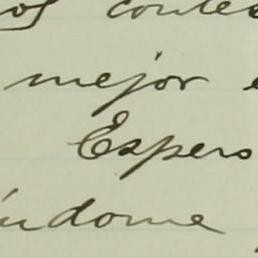 os contes
mejor e
Espero
índome